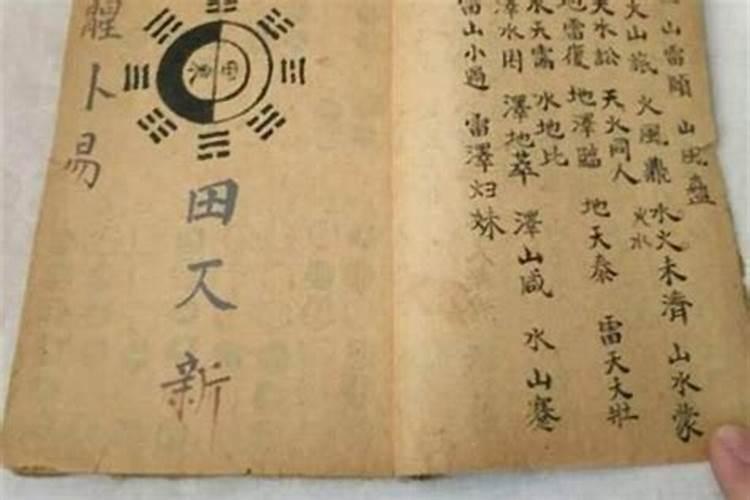 山雷頤
山風蠱
火山旅
火風鼎
火水
水火未濟
山水蒙
天水訟
天火同人
地雷復
地澤臨
地天泰
雷天大壯
水天需
水地比
澤水困
澤地萃
澤山咸
水山蹇
雷山小過
雷澤归妹
卜易
田
新